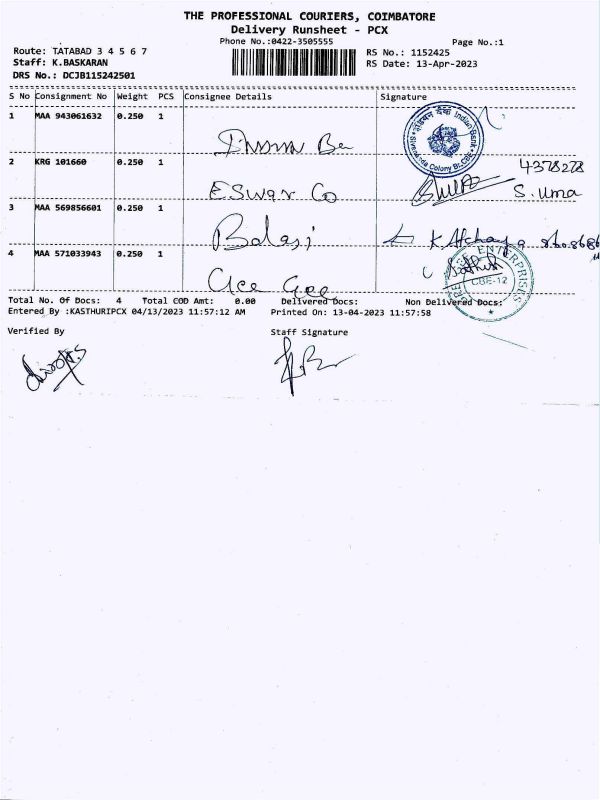 THE PROFESSIONAL COURIERS, COIMBATORE
Delivery Runsheet - PCX
Phone No.:0422-3505555 Page No.:1
Route: TATABAD 3 4 5 6 7 RS No.: 1152425
Staff: K.BASKARAN RS Date: 13-Apr-2023
DRS No.: DCJB115242501
S No Consignment No Weight PCS Consignee Details Signature
1 MAA 943061632 0.250 1
Indian Bank
Colony Br. CBE
2 KRG 101660 0.250 1 4378278
Eswar Co S. Uma
3 MAA 569856601 0.250 1
Balaji
4 MAA 571033943 0.250 1
ENTERPRISES
CBE-12
Ace Gee
Total No. Of Docs: 4 Total COD Amt: 0.00 Delivered Docs: Non Delivered Docs:
Entered By :KASTHURIPCX 04/13/2023 11:57:12 AM Printed On: 13-04-2023 11:57:58
Verified By Staff Signature